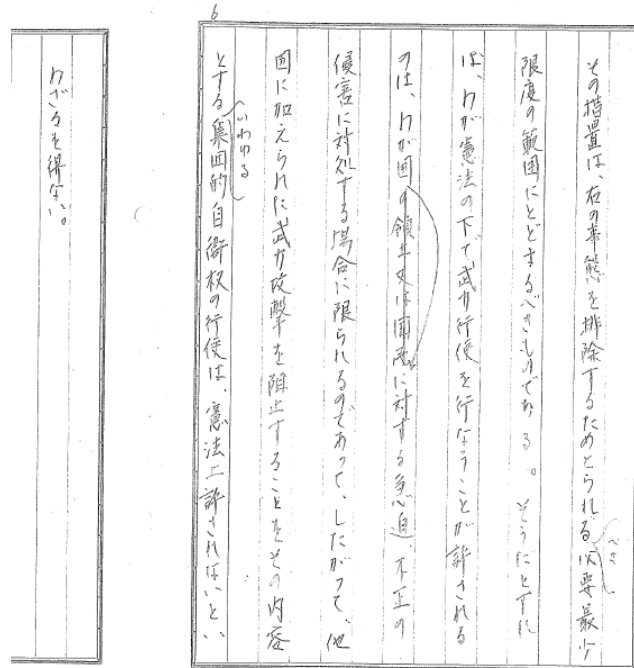 6
その措置は、右の事態を排除するためとられるべき必要最少
限度の範囲にとどまるべきものである。そうだとすれ
ば、わが憲法の下で武力行使を行なうことが許される
のは、わが国の領土又はに対する急迫、不正の
侵害に対処する場合に限られるのであって、したがって、他
国に加えられた武力攻撃を阻止することをその内容
とするいわゆる集団的自衛権の行使は、憲法上許されないとい
わざるを得ない。